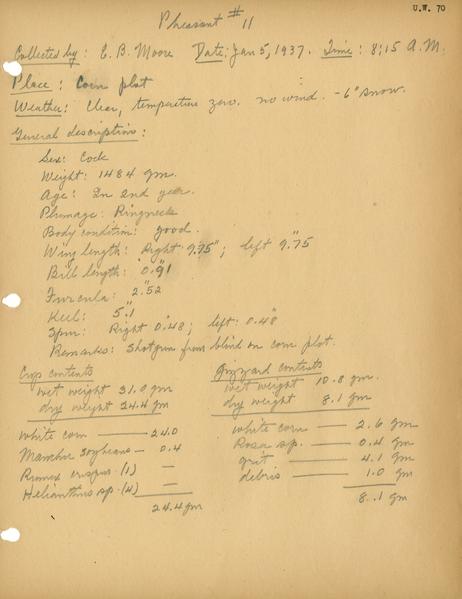 U.W. 70
Pheasant #11
Collected by: E. B. Moore Date: Jan 5, 1937. Time: 8:15 A.M.
Place: Corn plot
Weather: Clear, temperature zero. no wind. -6" snow.
General description:
Sex: Cock
Weight: 1484 gm.
Age: In 2nd year.
Plumage: Ringneck
Body condition: good.
Wing length: Right 9.75"; left 9."75
Bill length: 0."91
Furcula: 2."52
Keel: 5."1
Spur: Right 0."48; left: 0.48"
Remarks: Shotgun from blind on corn plot.
Crop contents
wet weight 31.0 gm
dry weight 24.4 gm
white corn — 24.0
Manchu Soybeans — 0.4
Rumex crispus (1) —
Helianthus sp. (4) —
24.4 gm
Gizzard contents
wet weight 10.8 gm.
dry weight 8.1 gm
white corn — 2.6 gm
Rosa sp. — 0.4 gm
grit — 4.1 gm
debris — 1.0 gm
8.1 gm